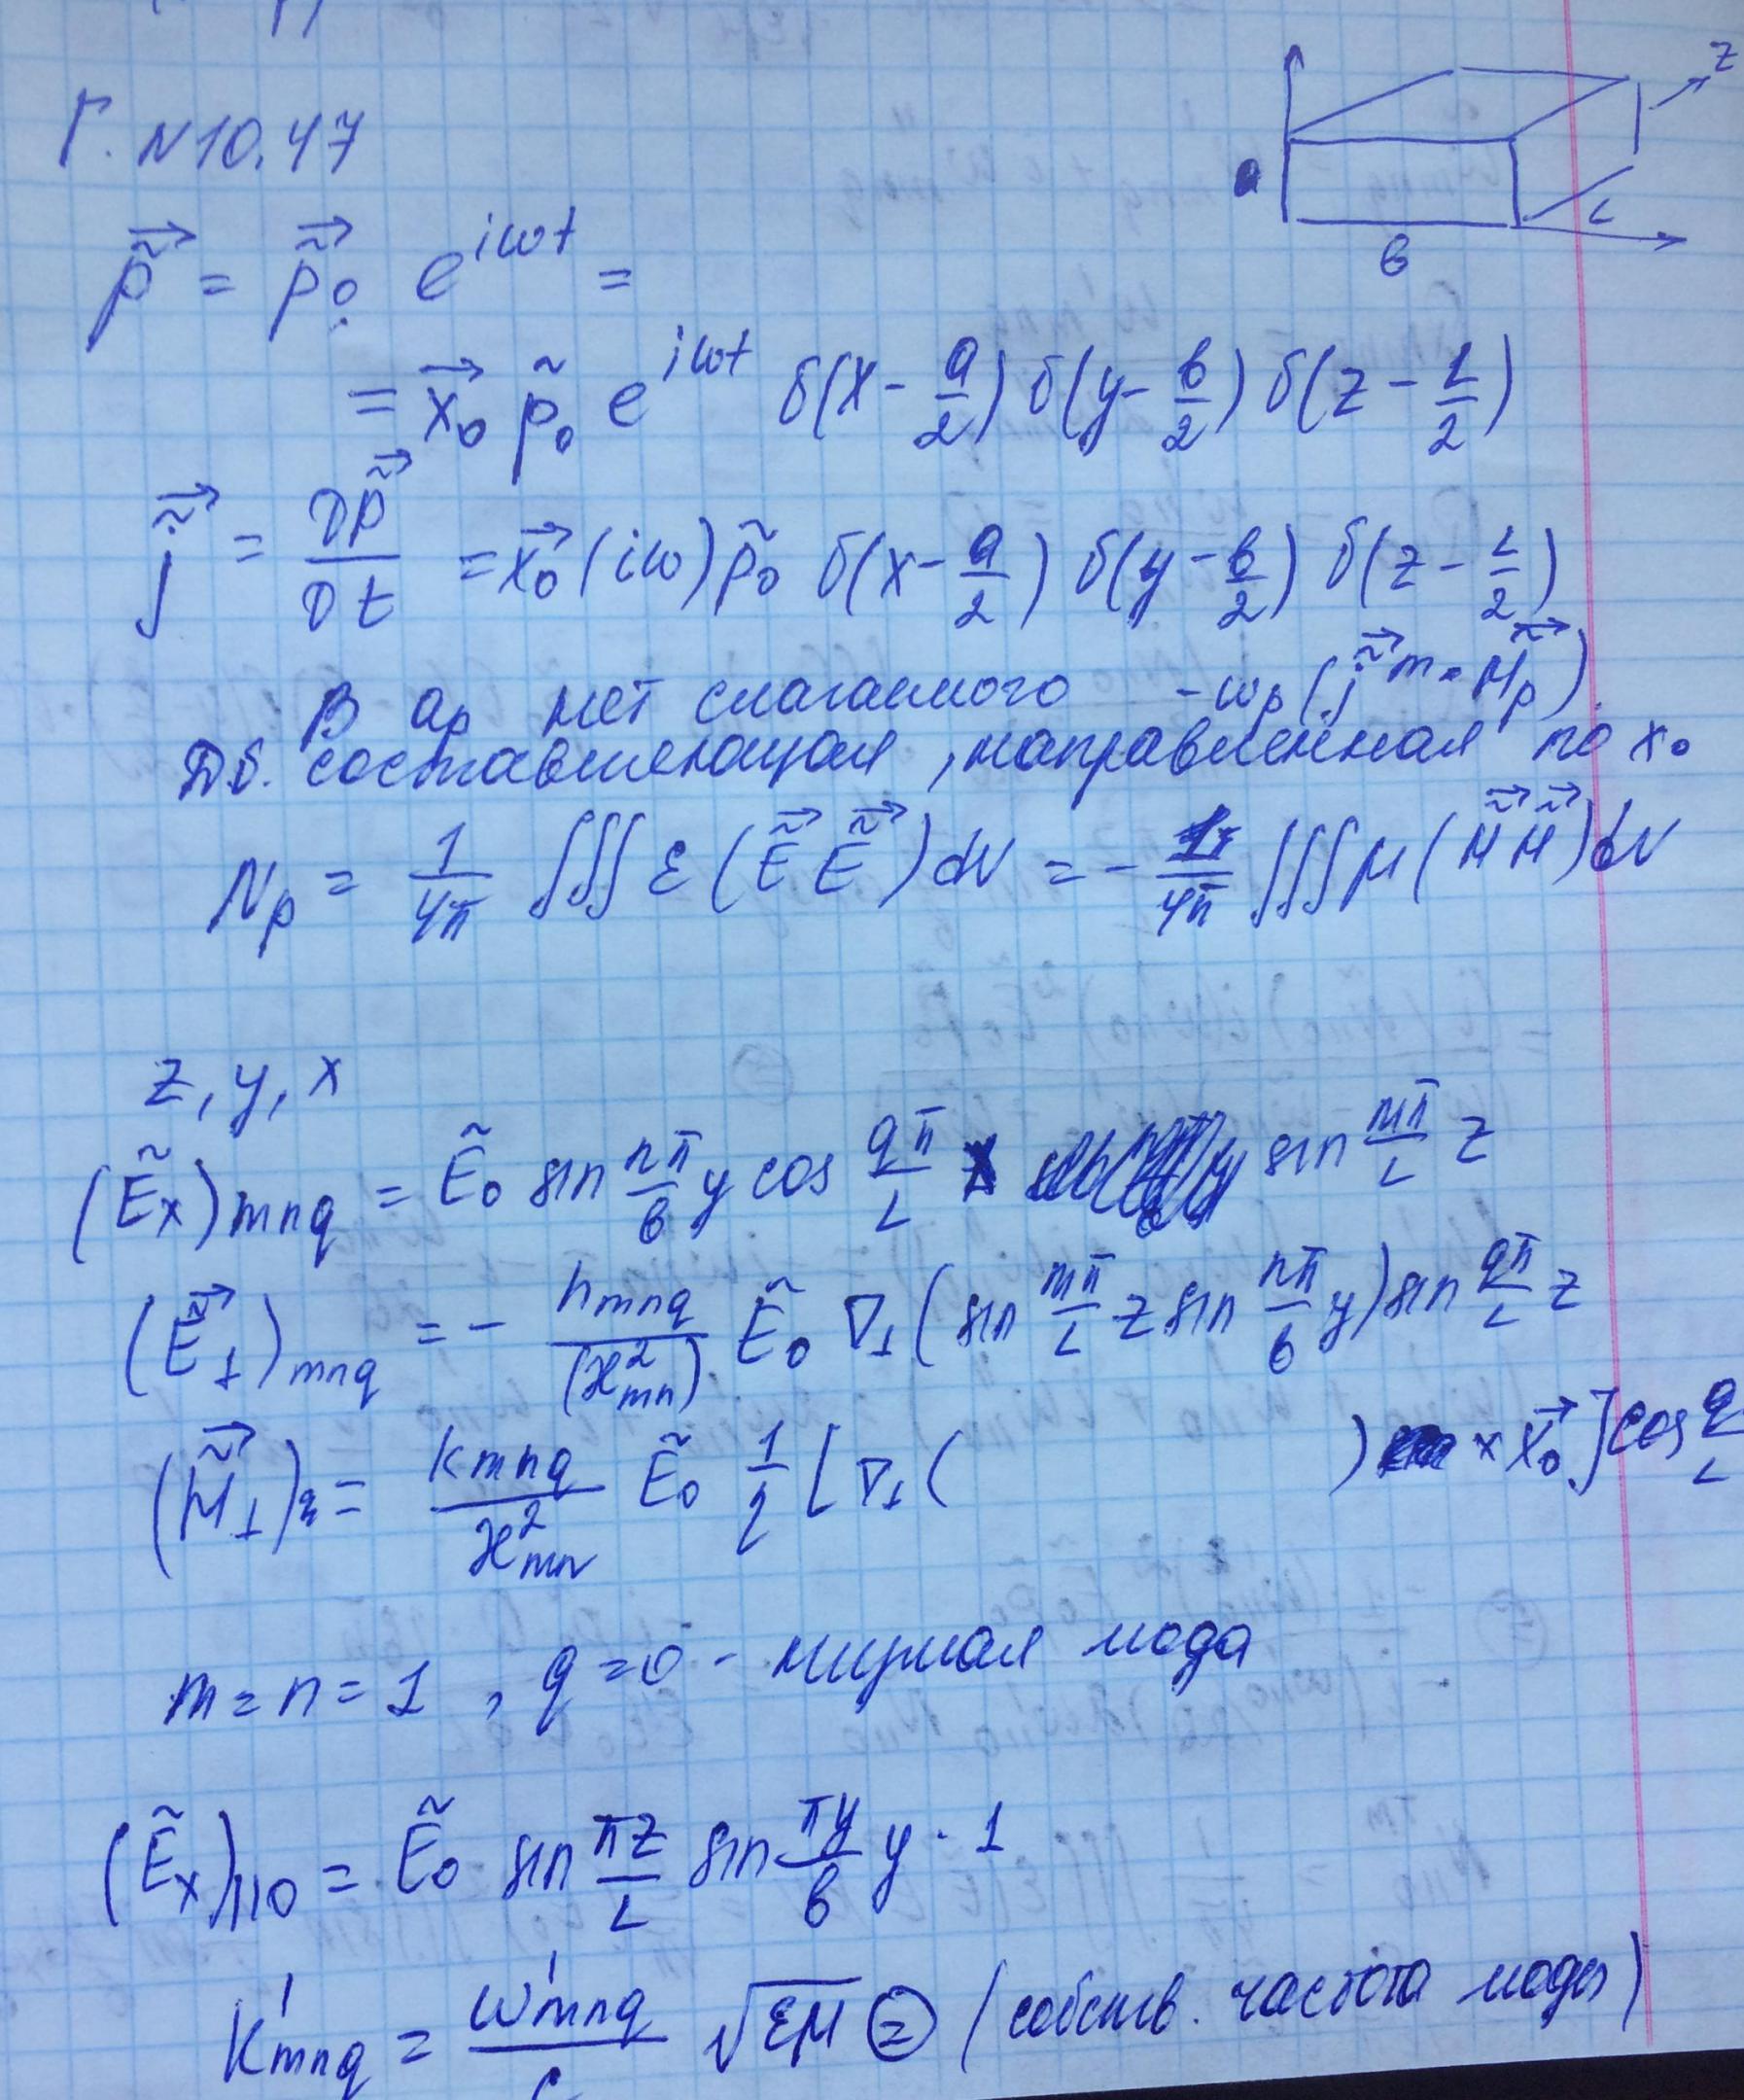 Г. N10.47
z
a
L
в
p̃⃗ = p̃⃗₀ e^{iωt} =
= x⃗₀ p̃₀ e^{iωt} δ(x - a/2) δ(y - в/2) δ(z - L/2)
j̃⃗ = ∂p̃⃗/∂t = x⃗₀ (iω) p̃₀ δ(x - a/2) δ(y - в/2) δ(z - L/2)
В aₚ нет слагаемого -ωₚ(j̃⃗ᵐ · H̃⃗ₚ).
Дб. составляющая, направленная по x₀
Nₚ = 1/4π ∭ ε(Ẽ⃗ Ẽ⃗) dV = - 1/4π ∭ μ(H̃⃗ H̃⃗) dV
z, y, x
(Ẽₓ)mnq = Ẽ₀ sin nπ/в y cos qπ/L x sin mπ/L z
(Ẽ⃗⊥)mnq = - hmnq/(æ²mn) Ẽ₀ ∇⊥(sin mπ/L z sin nπ/в y) sin qπ/L z
(H̃⃗⊥) = kmnq/æ²mn Ẽ₀ 1/η [∇⊥( ) × x⃗₀] cos q/L
m = n = 1, q = 0 - нужная мода
(Ẽₓ)110 = Ẽ₀ sin πz/L sin πy/в y · 1
k'mnq = ω'mnq/c √εμ = (собств. частота моды)